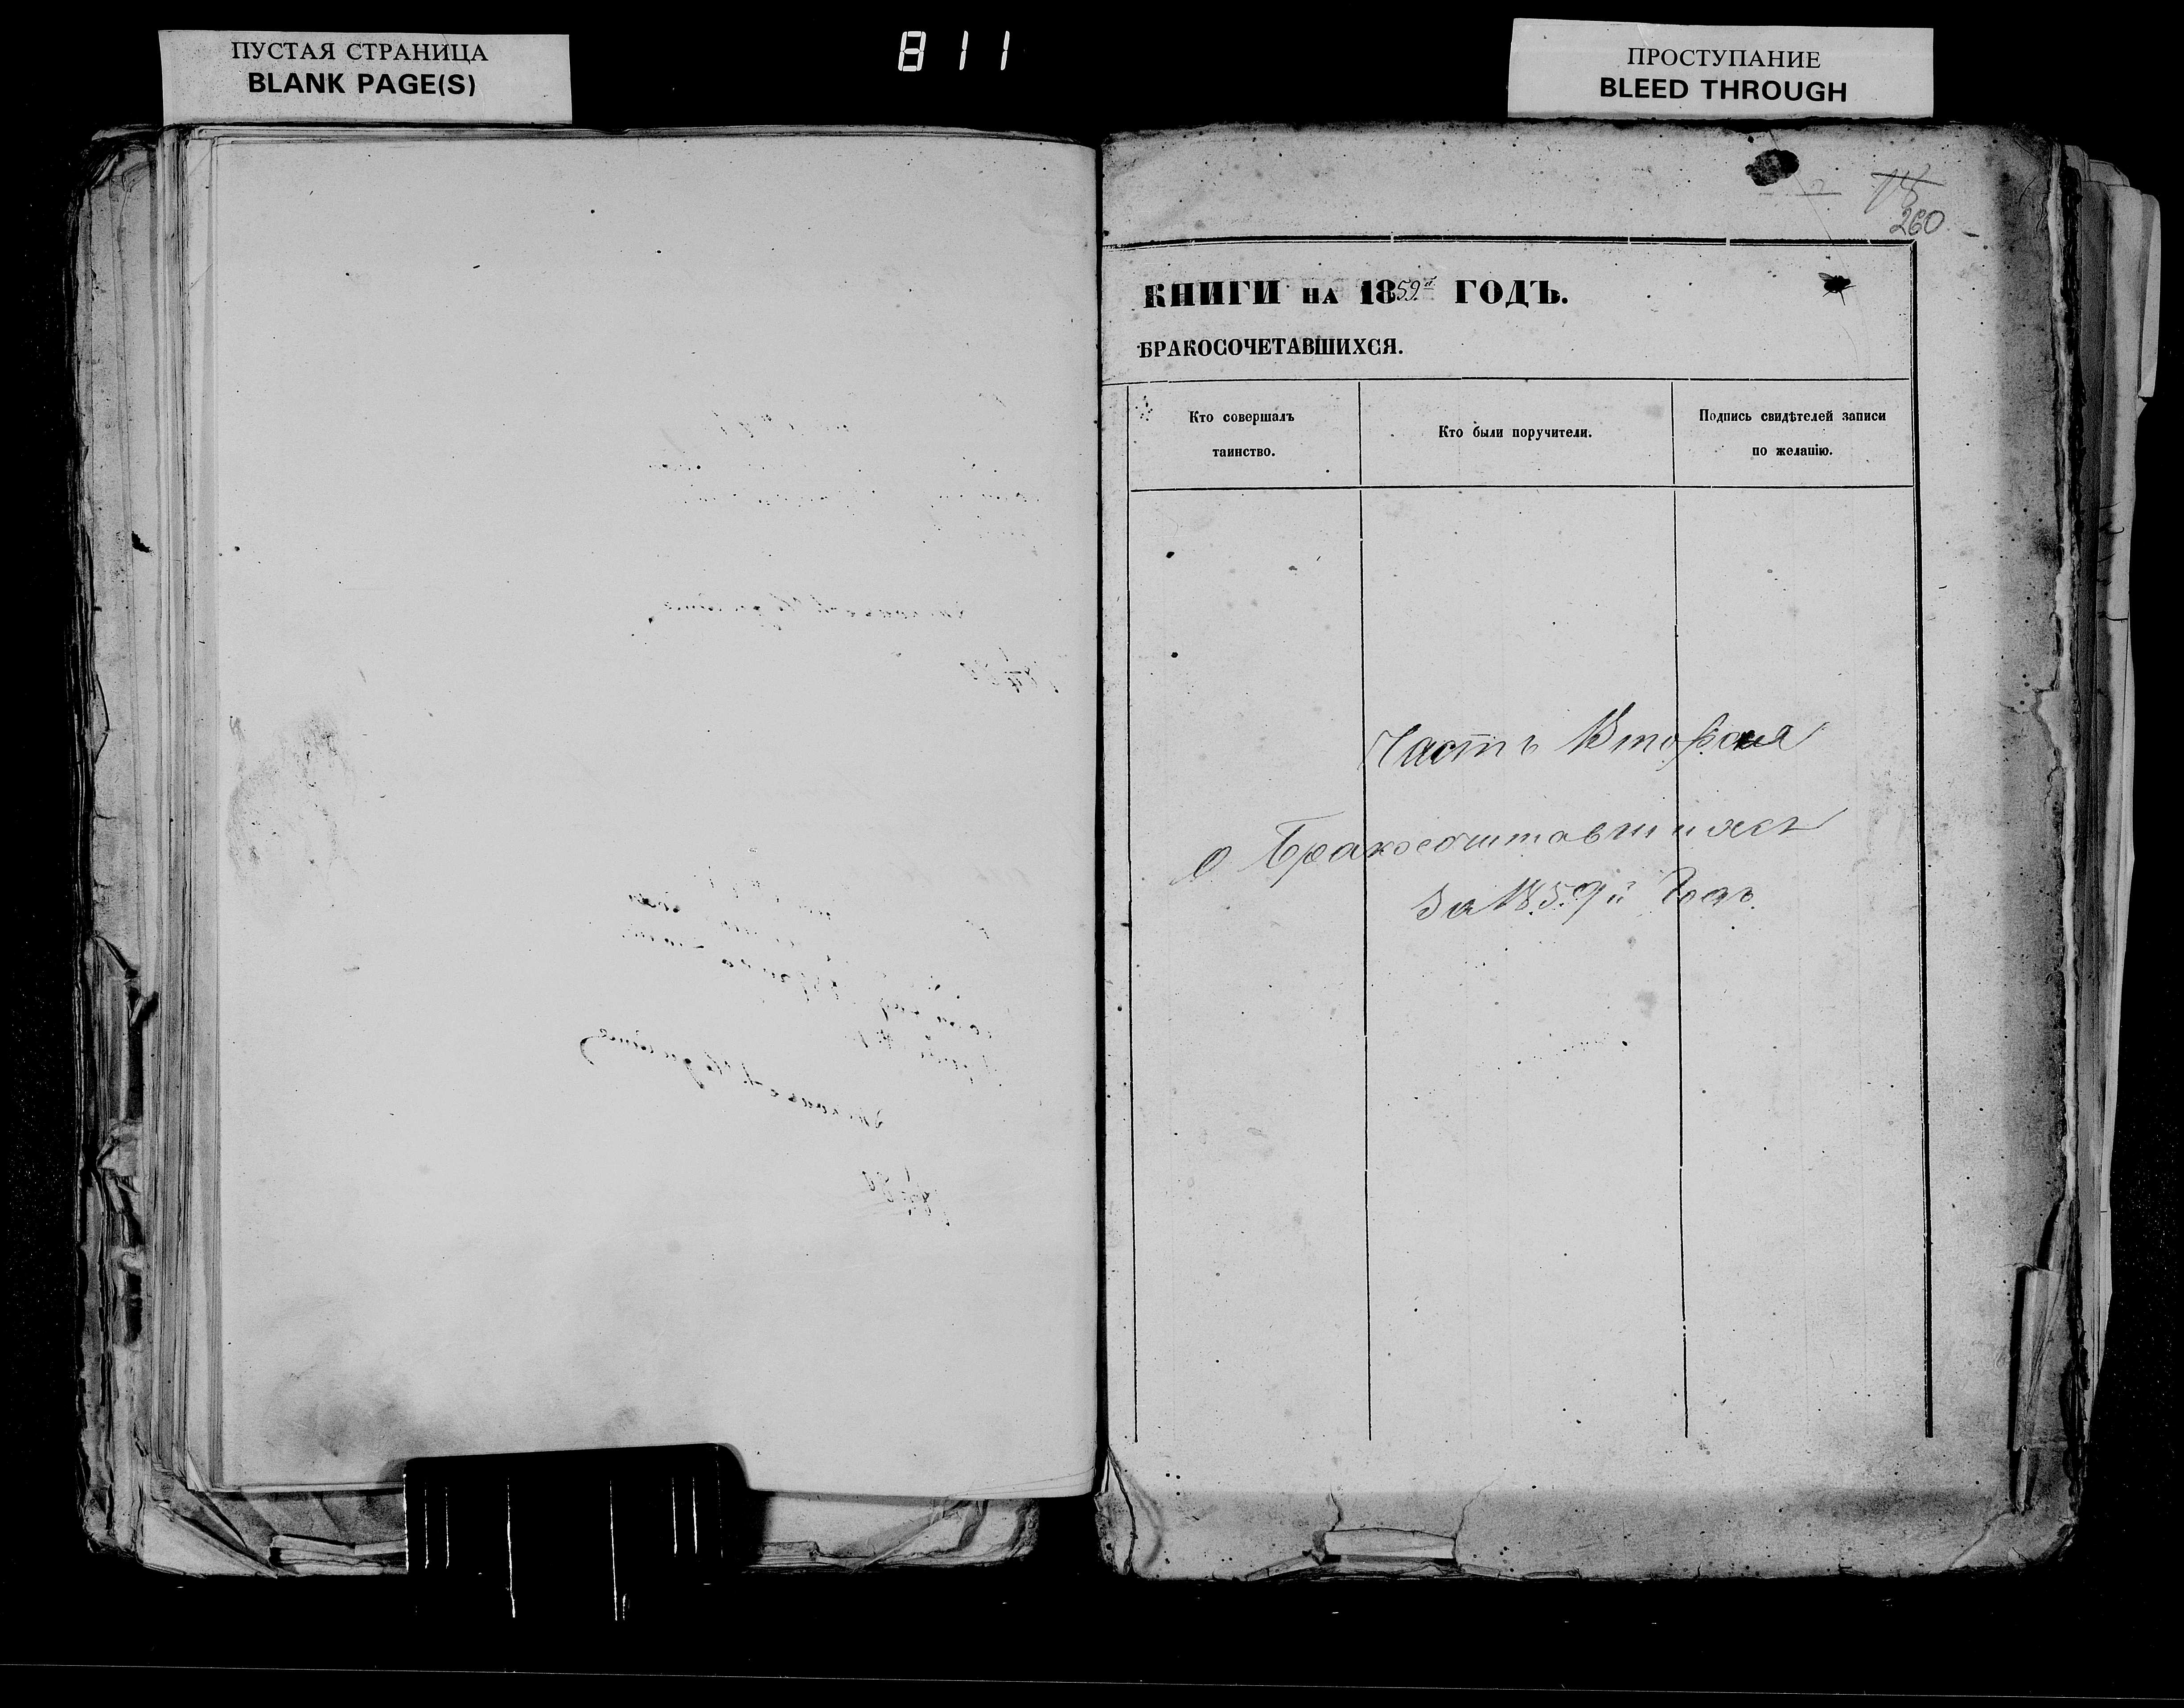 ПУСТАЯ СТРАНИЦА
BLANK PAGE(S)
811
ПРОСТУПАНИЕ
BLEED THROUGH
18
260
КНИГИ НА 1859й ГОДЪ.
БРАКОСОЧЕТАВШИХСЯ.
Кто совершалъ
таинство.
Кто были поручители.
Подпись свидѣтелей записи
по желанію.
Часть Вторая
О Бракосочитавшихся
За 1859й Годъ.